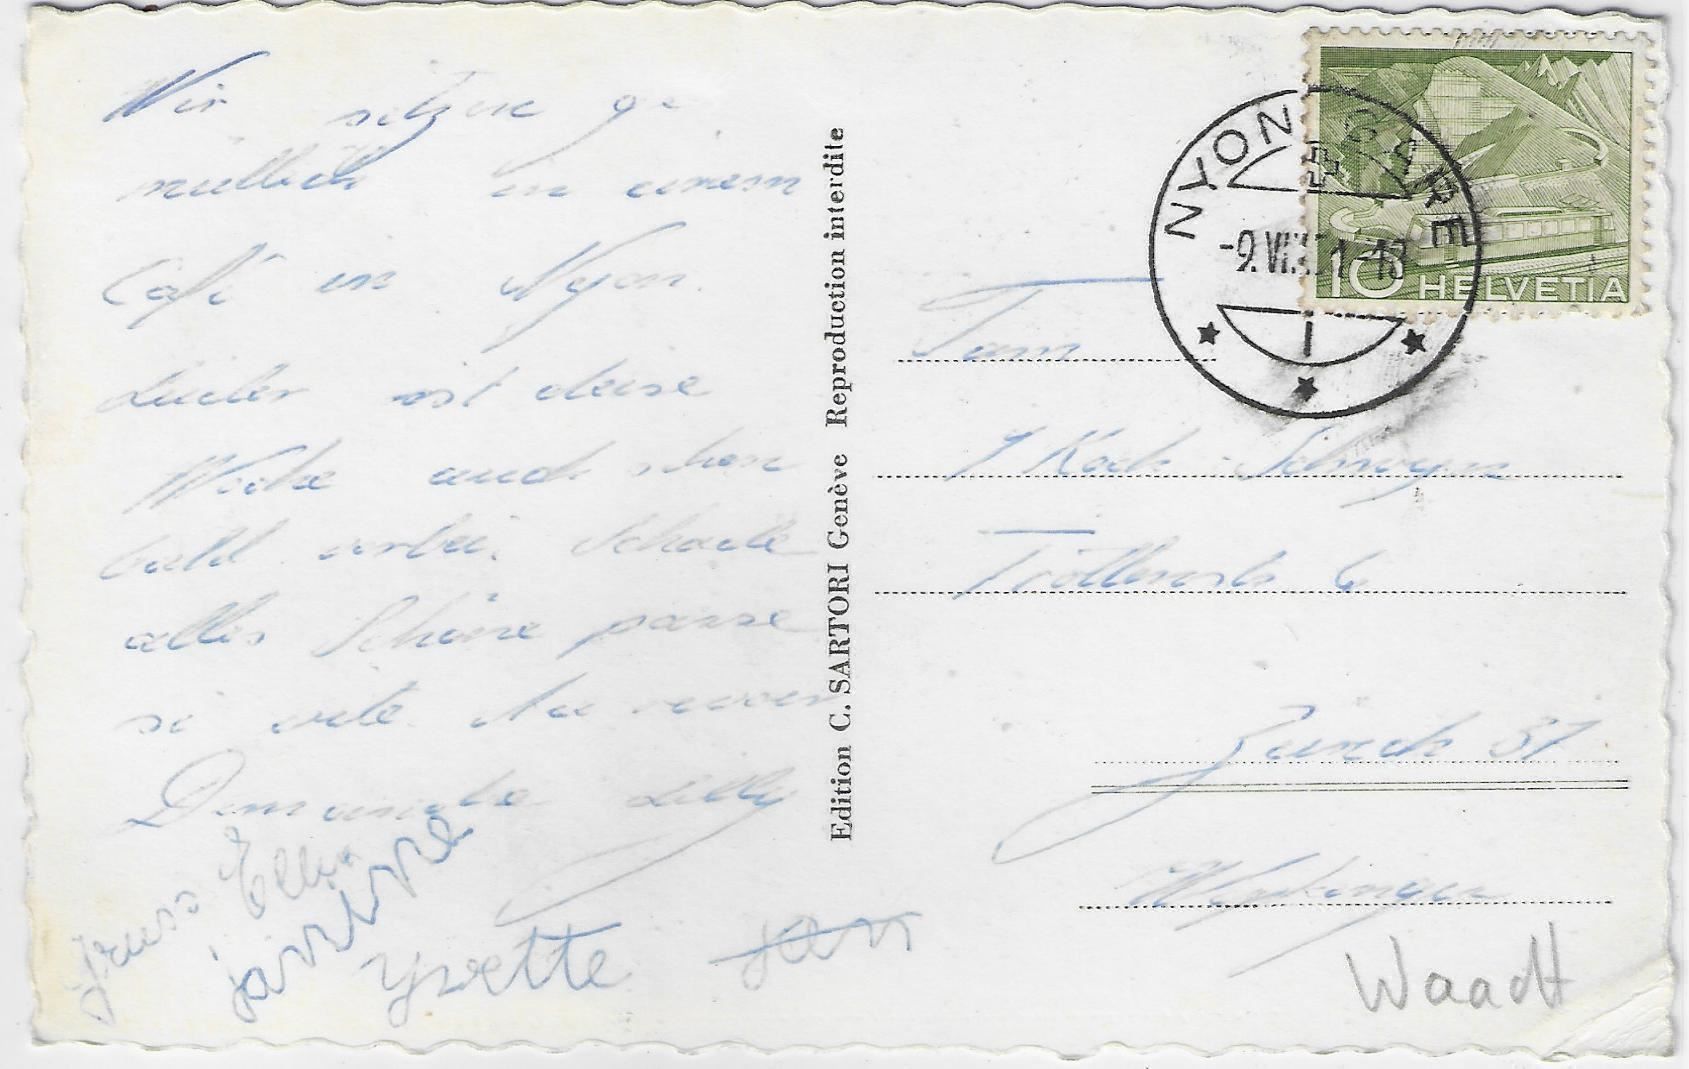 Wir sitzen ge
mütlich in einem
Café in Nyon.
Leider ist diese
Woche auch schon
bald vorbei. Schade
alles Schöne passe
si vite. Au revoir
Dimanche Lilly
Gruss Elli
Yvette Jan
Edition C. SARTORI Genève Reproduction interdite
NYON GARE
-9.VI.51-18
1
10 HELVETIA
Fam
Koch
6
Zürich 37
Wipkingen
Waadt